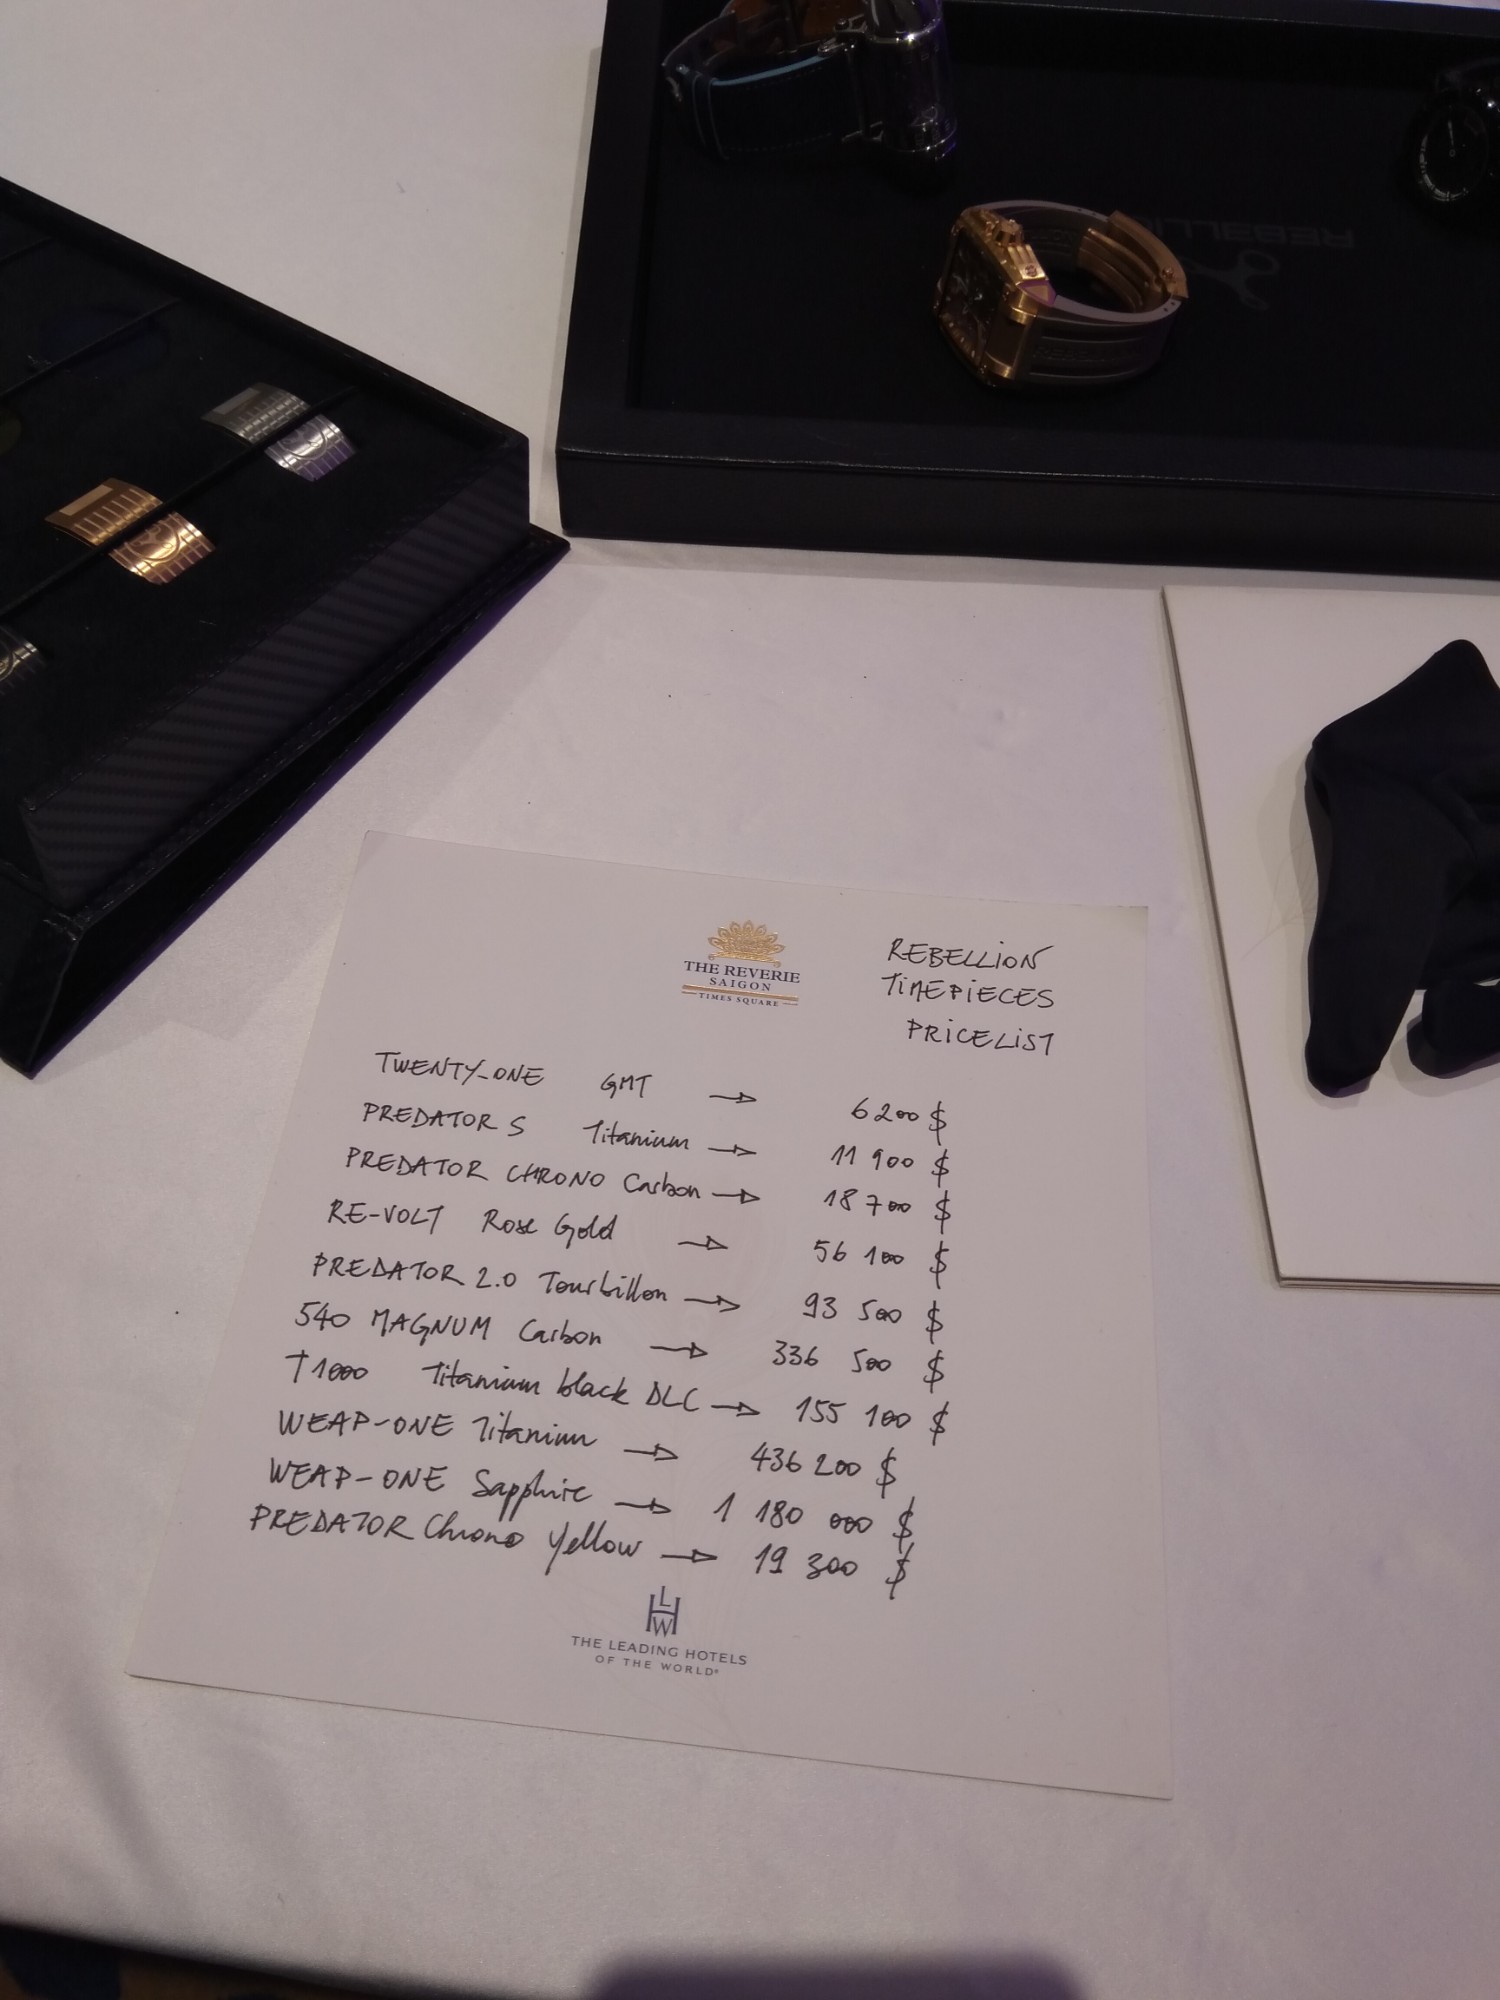 REBELLION
THE REVERIE
SAIGON
TIMES SQUARE
REBELLION
TIMEPIECES
PRICELIST
TWENTY_ONE GMT → 6200 $
PREDATOR S Titanium → 11 900 $
PREDATOR CHRONO Carbon → 18 700 $
RE-VOLT Rose Gold → 56 100 $
PREDATOR 2.0 Tourbillon → 93 500 $
540 MAGNUM Carbon → 336 500 $
T1000 Titanium black DLC → 155 100 $
WEAP-ONE Titanium → 436 200 $
WEAP-ONE Sapphire → 1 180 000 $
PREDATOR Chrono Yellow → 19 300 $
LHW
THE LEADING HOTELS
OF THE WORLD®